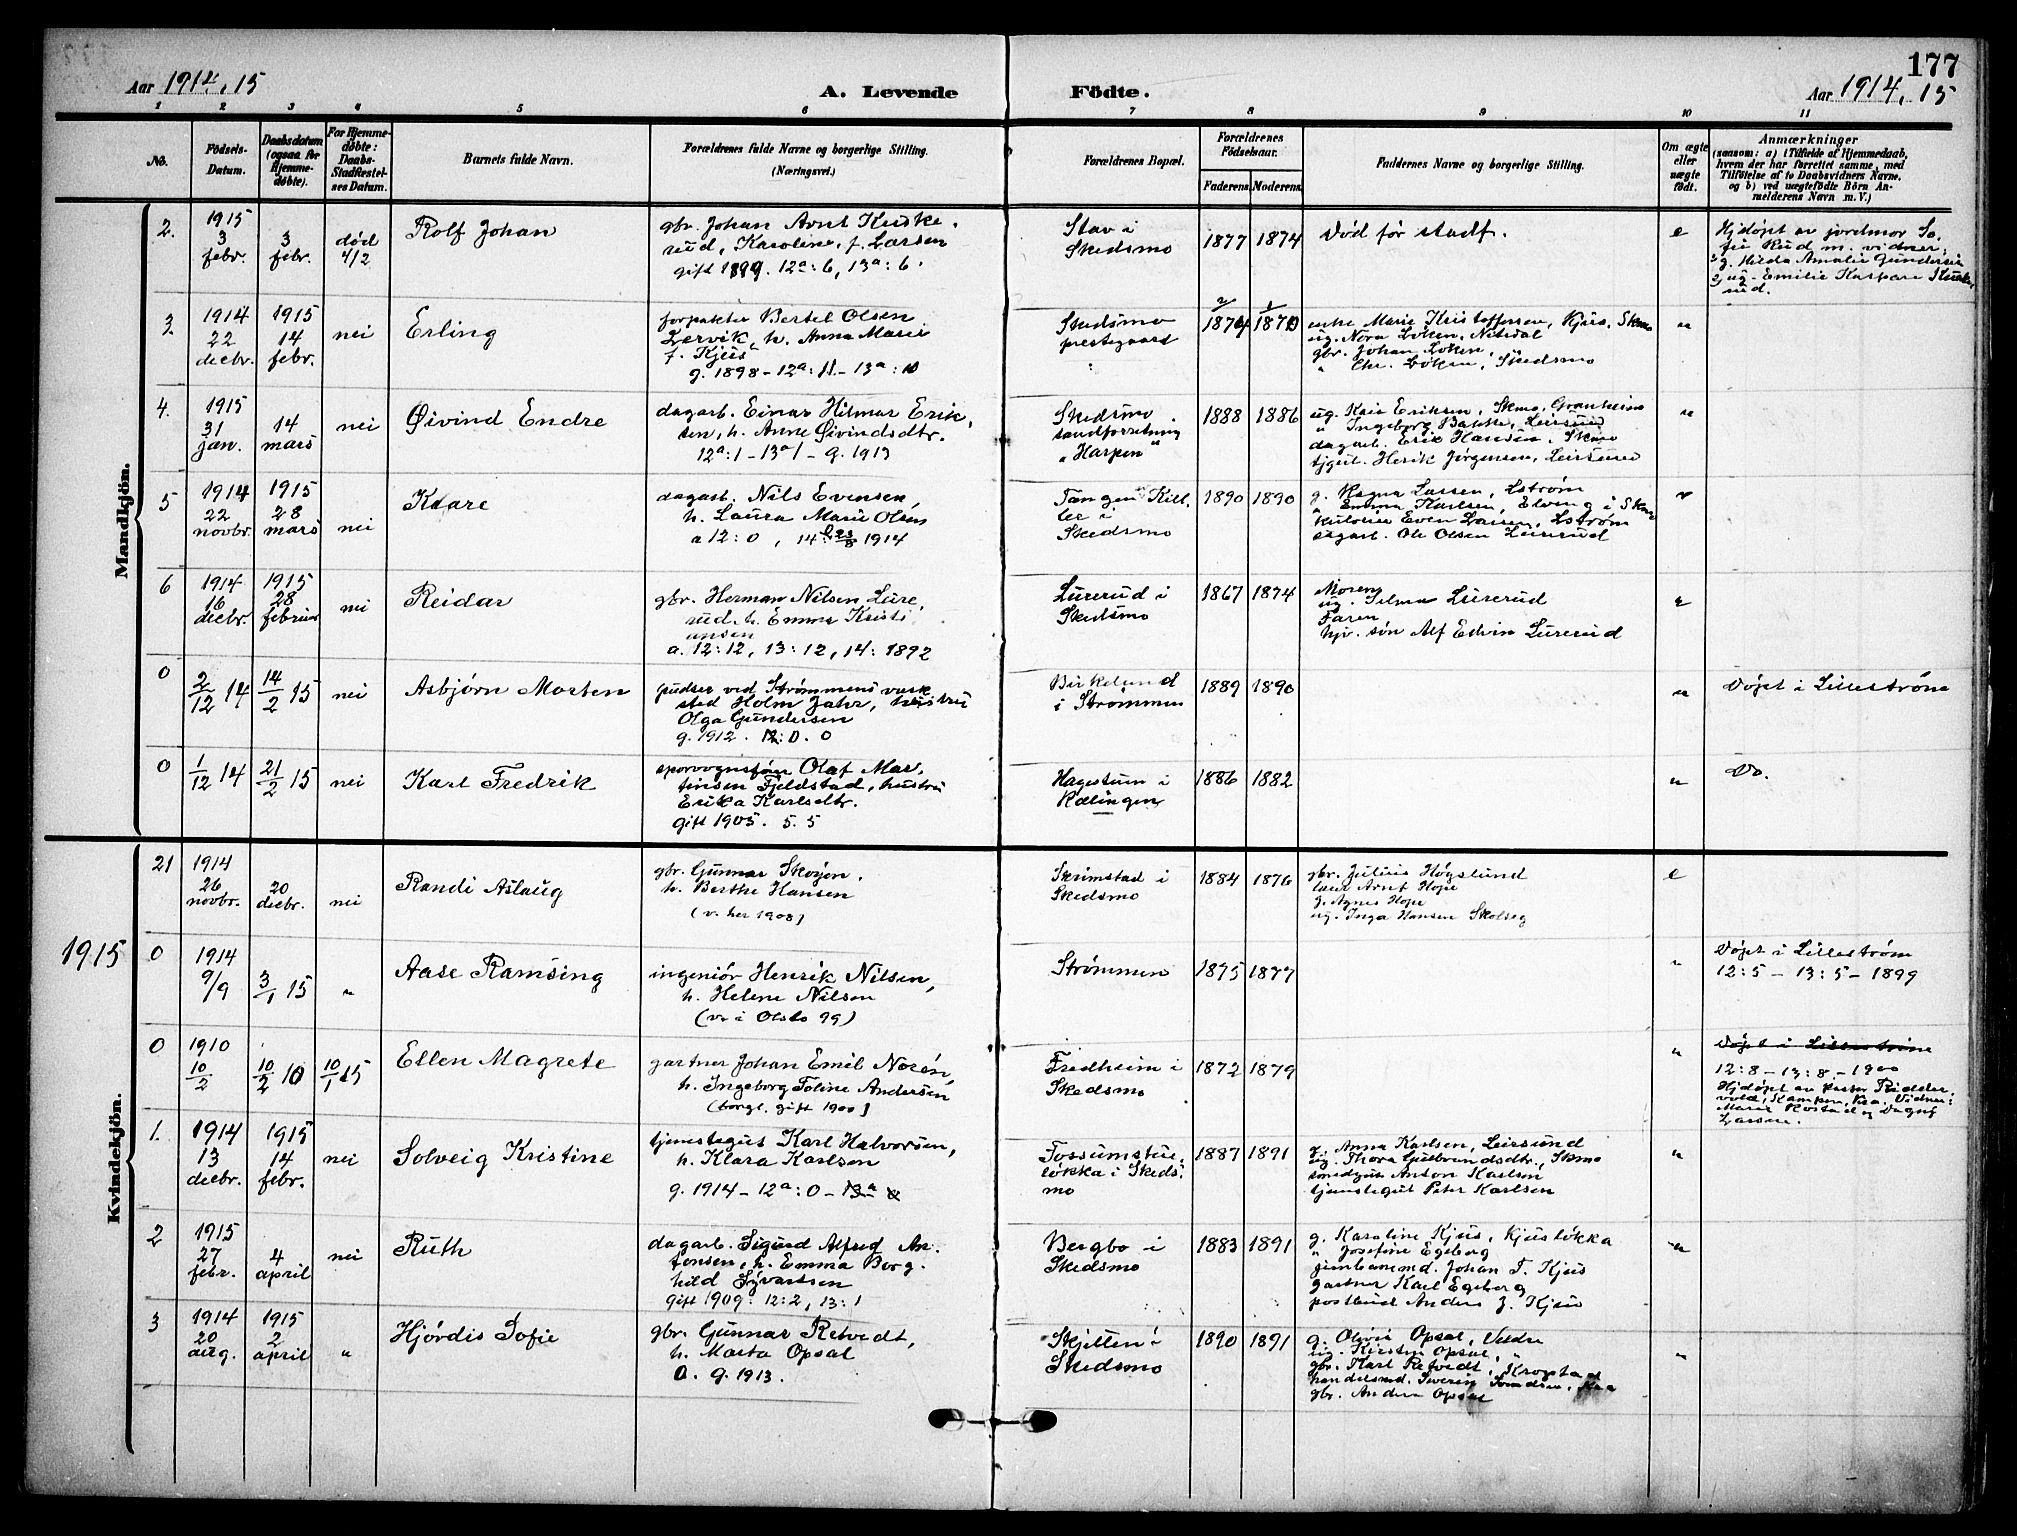 177
Aar 1914, 15
A. Levende Födte.
Aar 1914, 15
1 2 3 4 5 6 7 8 9 10 11
No.
Födsels-Datum.
Daabsdatum (ogsaa for Hjemme-døbte).
For Hjemme-døbte: Daabs-Stadfæstel-ses Datum.
Barnets fulde Navn.
Forældrenes fulde Navne og borgerlige Stilling.
(Næringsvei.)
Forældrenes Bopæl.
Forældrenes Födselsaar.
Faderens. Moderens.
Faddernes Navne og borgerlige Stilling.
Om ægte eller uægte födt.
Anmærkninger
(saasom: a) i Tilfælde af Hjemmedaab, hvem der har forrettet samme, med Tilføielse af to Daabsvidners Navne, og b) ved uægtefödte Börn An-melderens Navn m. V.)
Mandkjön.
2. 1915 3 febr. 3 febr. død 4/2
Rolf Johan
gbr. Johan Arnt Kuske-
rud, Karoline, f. Larsen
gift 1899. 12a: 6, 13a: 6.
Stav i
Skedsmo
1877 1874
Død før stadf.
e
Hjdøpt av jordmor So-
fie Rud m. vidner:
g. Hilda Amalie Gundersen
ug. Emilie Kaspara Kuske-
rud.
3. 1914 22 decbr. 1915 14 febr. nei
Erling
forpakter Bertel Olsen
Lervik, h. Anna Marie
f. Kjus
g. 1898 - 12a: 11 - 13a: 10
Skedsmo
prestegaard
1874 1870
enke Marie Kristoffersen, Kjus, Skmo
ug. Nora Løken, Nitedal
gbr. Johan Løken,
" Chr. Løken, Skedsmo
"
4. 1915 31 jan. 14 mars nei
Øivind Endre
dagarb. Einar Hilmar Erik-
sen, h. Anne Øivindsdtr.
12a: 1 - 13a 1 - g. 1913
Skedsmo
sandforretning
"Harpen"
1888 1886
ug. Kaia Eriksen, Skmo, Granheim
" Ingeborg Bakke, Leirsund
dagarb. Erik Hansen, Skmo
tjgut. Henrik Jørgensen, Leirsund
"
5 1914 22 novbr. 1915 28 mars nei
Kaare
dagarb. Nils Evensen,
h. Laura Marie Olsen
a 12: 0, 14: 1914
Tangen
i
Skedsmo
1890 1890
g. Ragna Larsen, Lstrøm
" Emma Karlsen, Elveng i Skmo
Even Larsen, Lstrøm
dagarb. Ole Olsen Lurerud
"
6 1914 16 decbr. 1915 28 februar nei
Reidar
gbr. Herman Nilsen Lure-
rud, h. Emma Kristi-
ansen
a. 12: 12, 13: 12, 14: 1892
Lurerud i
Skedsmo
1867 1874
Moren
ug. Selma Lurerud
Faren
hjv. søn Alf Edvin Lurerud
"
0 2/12 14 14/2 15 nei
Asbjørn Morten
pudser ved Strømmens verk-
sted Holm Jahr, hustru
Olga Gundersen
g. 1912. 12: 0. 0
Birkelund
i Strømmen
1889 1890
"
Døpt i Lillestrøm
0 1/12 14 21/2 15 nei
Karl Fredrik
sporvognsfør. Olaf Mar-
tinsen Fjeldstad, hustru
Erika Karlsdtr.
gift 1905. 5. 5
Hagestuen i
Rælingen
1886 1882
"
Do.
Kvindekjön.
21 1914 26 novbr. 20 decbr. nei
Randi Aslaug
gbr. Gunnar Skøyen,
h. Berthe Hansen
(v. her 1908)
Skrimstad i
Skedsmo
1884 1876
gbr. Julius Høgslund
Arnt Hope
g. Agnes Hope
ug. Inga Hansen Skolseg
e
1915
0 1914 9/9 3/1 15 "
Aase Ramsing
ingeniør Henrik Nilsen,
h. Helene Nilsen
(v. i Olsto 99)
Strømmen
1875 1877
"
Døpt i Lillestrøm
12: 5 - 13: 5 - 1899
0 1910 10/2 10/2 10 10/1 15
Ellen Magrete
gartner Johan Emil Norén,
h. Ingeborg Foline Andersen
(borgl. gift 1900)
Fredheim i
Skedsmo
1872 1879
"
Døpt i Lillestrøm
12: 8 - 13: 8 - 1900
Hjdøpt av pastor Ridder-
vold, Kampen, Kra. Vidner:
Marie Rostad og Dagny
Larsen.
1. 1914 13 decbr. 1915 14 febr. nei
Solveig Kristine
tjenestegut Karl Halvorsen,
h. Klara Karlsen
g. 1914 - 12a: 0 - 13a 0
Fossumstu-
løkka i Skeds-
mo
1887 1891
g. Anna Karlsen, Leirsund
ug. Thora Gulbrandsdtr., Skmo
Anton Karlsen
tjenestegut Peter Karlsen
"
2 1915 27 febr. 4 april nei
Ruth
dagarb. Sigurd Alfred An-
tonsen, h. Emma Borg-
hild Syvertsen
gift 1909. 12: 2, 13: 1
Bergbo i
Skedsmo
1883 1891
g. Karoline Kjus, Kjusløkka
" Josefine Egeberg
jernbanemd. Johan T. Kjus
gartner Karl Egeberg
postbud Anders J. Kjus
"
3 1914 20 aug. 1915 2 april "
Hjørdis Sofie
gbr. Gunnar Retvedt,
h. Marta Opsal
0. g. 1913.
Skjetten i
Skedsmo
1890 1891
g. Olivia Opsal,
ug. Kirsten Opsal, "
gbr. Karl Retvedt, Krogstad
handelsmd. Severin Svendsen, Kra
gbr. Anders Opsal
"